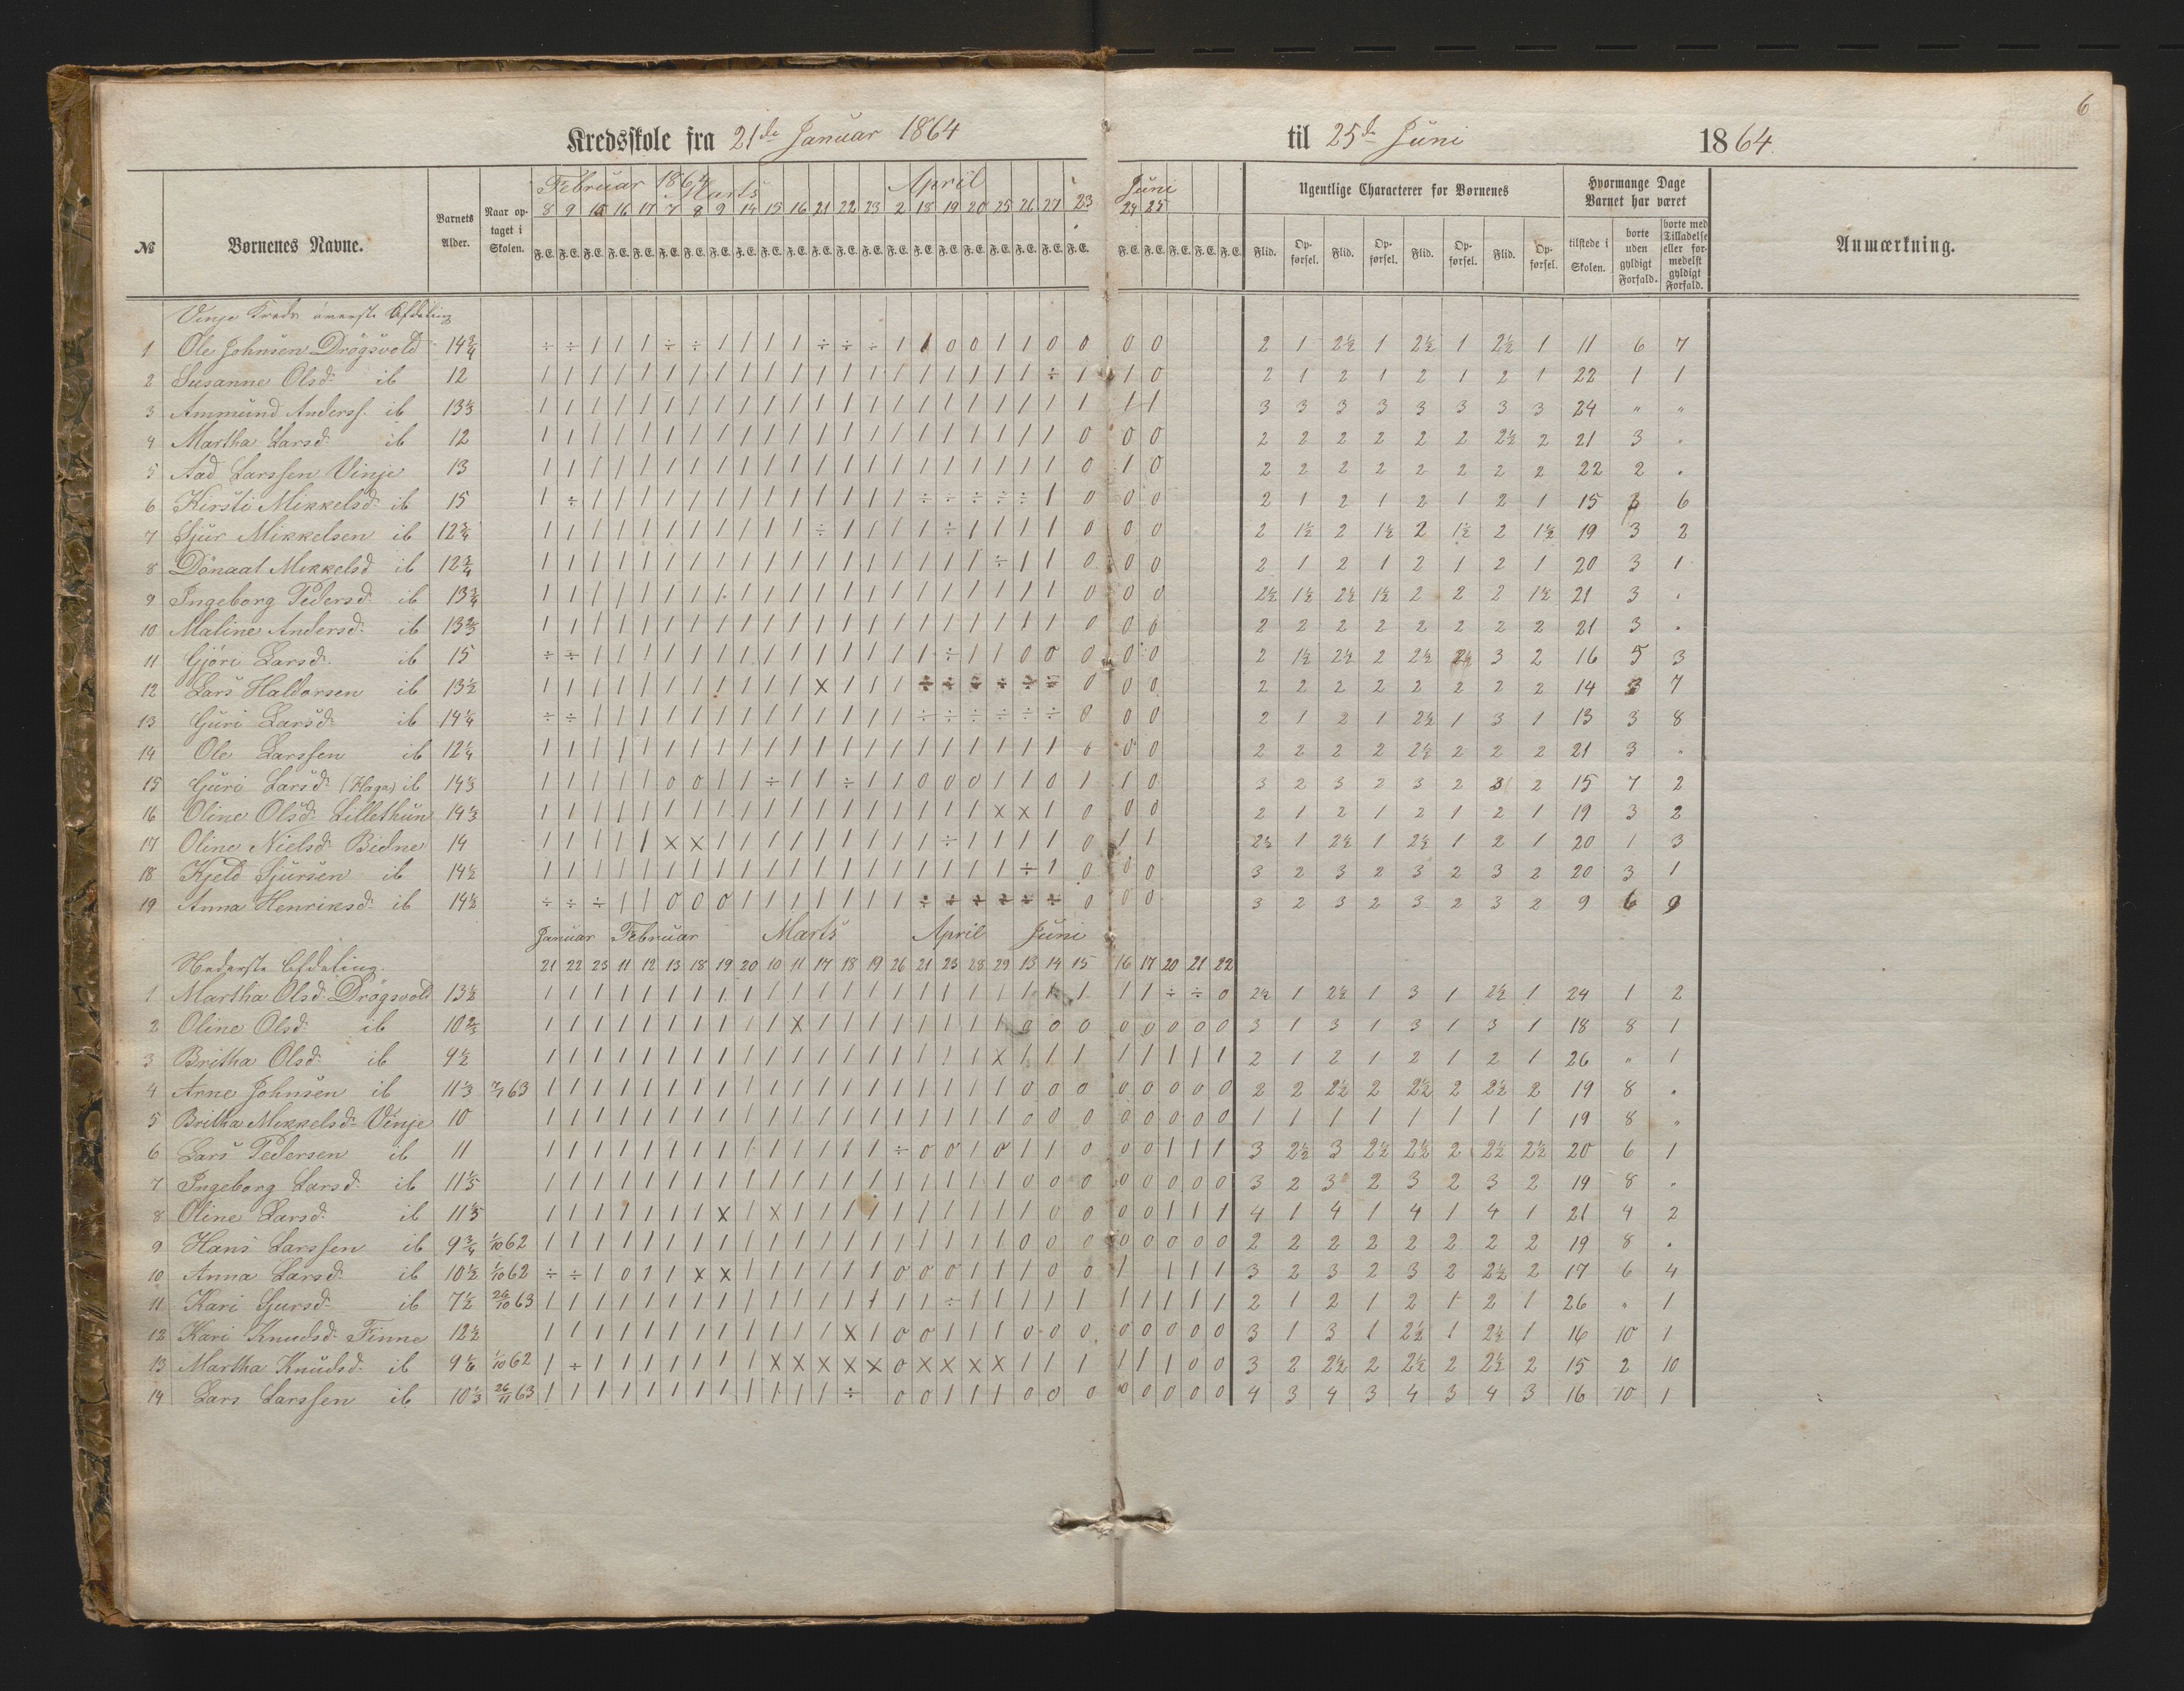 6
Kredsskole fra 21de Januar 1864 til 25de Juni 1864.
№ Børnenes Navne. Barnets Alder. Naar optaget i Skolen. Februar 1864 Marts April Juni Ugentlige Characterer for Børnenes Hvormange Dage Barnet har været Anmærkning.
8 9 10 16 17 7 8 9 14 15 16 21 22 23 2 18 19 20 25 26 27 23 24 25
F. E. F. E. F. E. F. E. F. E. F. E. F. E. F. E. F. E. F. E. F. E. F. E. F. E. F. E. F. E. F. E. F. E. F. E. F. E. F. E. F. E. F. E. F. E. F. E. F. E. F. E. F. E. Flid. Opførsel. Flid. Opførsel. Flid. Opførsel. Flid. Opførsel. tilstede i Skolen. borte uden gyldigt Forfald. borte med Tilladelse eller formedelst gyldigt Forfald.
Vinje Kreds øverste Afdeling
1 Ole Johnsen Drøgsvold 14 3/4 ÷ ÷ 1 1 1 ÷ ÷ 1 1 1 1 ÷ ÷ ÷ 1 1 0 0 1 1 0 0 0 0 2 1 2½ 1 2½ 1 2½ 1 11 6 7
2 Susanne Olsd: ib 12 1 1 1 1 1 1 1 1 1 1 1 1 1 1 1 1 1 1 1 1 ÷ 1 1 0 2 1 2 1 2 1 2 1 22 1 1
3 Ammund Anderss. ib 13 1/3 1 1 1 1 1 1 1 1 1 1 1 1 1 1 1 1 1 1 1 1 1 1 1 1 3 3 3 3 3 3 3 3 24 " "
4 Martha Larsd: ib 12 1 1 1 1 1 1 1 1 1 1 1 1 1 1 1 1 1 1 1 1 1 0 0 0 2 2 2 2 2 2 2½ 2 21 3 "
5 Aad Larssen Vinje 13 1 1 1 1 1 1 1 1 1 1 1 1 1 1 1 1 1 1 1 1 1 0 1 0 2 2 2 2 2 2 2 2 22 2 "
6 Kirsti Mikkelsd: ib 15 1 ÷ 1 1 1 1 1 1 1 1 1 1 1 1 1 ÷ ÷ ÷ ÷ ÷ 1 0 0 0 2 1 2 1 2 1 2 1 15 3 6
7 Sjur Mikkelsen ib 12 3/4 1 1 1 1 1 1 1 1 1 1 1 ÷ 1 1 1 1 ÷ 1 1 1 1 0 0 0 2 1½ 2 1½ 2 1½ 2 1½ 19 3 2
8 Dønaat Mikkelsd ib 12 3/4 1 1 1 1 1 1 1 1 1 1 1 1 1 1 1 1 1 1 ÷ 1 1 0 0 0 2 1 2 1 2 1 2 1 20 3 1
9 Ingeborg Pedersd: ib 13 3/4 1 1 1 1 1 1 1 1 1 1 1 1 1 1 1 1 1 1 1 1 1 0 0 0 2½ 1½ 2½ 1½ 2 2 2 1½ 21 3 "
10 Maline Andersd: ib 13 2/3 1 1 1 1 1 1 1 1 1 1 1 1 1 1 1 1 1 1 1 1 1 0 0 0 2 2 2 2 2 2 2 2 21 3 "
11 Gjøri Larsd: ib 15 ÷ ÷ 1 1 1 1 1 1 1 1 1 1 1 1 1 1 ÷ 1 1 0 0 0 0 0 2 1½ 2½ 2 2½ 2½ 3 2 16 5 3
12 Lars Haldorsen ib 13½ 1 1 1 1 1 1 1 1 1 1 1 x 1 1 1 ÷ ÷ ÷ ÷ ÷ ÷ 0 0 0 2 2 2 2 2 2 2 2 14 3 7
13 Guri Larsd: ib 14¼ ÷ ÷ 1 1 1 1 1 1 1 1 1 1 1 1 1 ÷ ÷ ÷ ÷ ÷ ÷ 0 0 0 2 1 2 1 2½ 1 3 1 13 3 8
14 Ole Larssen ib 12¼ 1 1 1 1 1 1 1 1 1 1 1 1 1 1 1 1 1 1 1 1 1 0 0 0 2 2 2 2 2½ 2 2 2 21 3 "
15 Guri Larsd: (Haga) ib 14 1/3 1 1 1 1 1 0 0 1 1 ÷ 1 1 ÷ 1 1 0 0 0 1 1 0 1 1 0 3 2 3 2 3 2 3 2 15 7 2
16 Oline Olsd: Lillethun 14 1/3 1 1 1 1 1 1 1 1 1 1 1 1 1 1 1 1 1 1 x x 1 0 0 0 2 1 2 1 2 1 2 1 19 3 2
17 Oline Nielsd: Bidne 14 1 1 1 1 1 x x 1 1 1 1 1 1 1 1 1 ÷ 1 1 1 1 0 1 1 2½ 1 2½ 1 2½ 1 2 1 20 1 3
18 Kjeld Sjursen ib 14½ 1 1 1 1 1 1 1 1 1 1 1 1 1 1 1 1 1 1 1 ÷ 1 0 0 0 3 2 3 2 3 2 3 2 20 3 1
19 Anna Henriksd: ib 14½ ÷ ÷ ÷ 1 1 0 0 0 1 1 1 1 1 1 1 ÷ ÷ ÷ ÷ ÷ ÷ 0 0 0 3 2 3 2 3 2 3 2 9 6 9
Januar Februar Marts April Juni
Nederste Afdeling. 21 22 23 11 12 13 18 19 20 10 11 17 18 19 26 21 23 28 29 13 14 15 16 17 20 21 22
1 Martha Olsd: Drøgsvold 13½ 1 1 1 1 1 1 1 1 1 1 1 1 1 1 1 1 1 1 1 1 1 1 1 1 ÷ ÷ 0 2½ 1 2½ 1 3 1 2½ 1 24 1 2
2 Oline Olsd: ib 10 2/3 1 1 1 1 1 1 1 1 1 1 x 1 1 1 1 1 1 1 1 0 0 0 0 0 0 0 0 3 1 3 1 3 1 3 1 18 8 1
3 Britha Olsd: ib 9½ 1 1 1 1 1 1 1 1 1 1 1 1 1 1 1 1 1 1 x 1 1 1 1 1 1 1 1 2 1 2 1 2 1 2 1 26 " 1
4 Arne Johnsen ib 11 1/3 7/7 63 1 1 1 1 1 1 1 1 1 1 1 1 1 1 1 1 1 1 1 0 0 0 0 0 0 0 0 2 2 2½ 2 2½ 2 2½ 2 19 8 "
5 Britha Mikkelsd: Vinje 10 1 1 1 1 1 1 1 1 1 1 1 1 1 1 1 1 1 1 1 0 0 0 0 0 0 0 0 1 1 1 1 1 1 1 1 19 8 "
6 Lars Pedersen ib 11 1 1 1 1 1 1 1 1 1 1 1 1 1 1 ÷ 0 0 1 0 1 1 0 0 0 1 1 1 3 2½ 3 2½ 2½ 2 2½ 2½ 20 6 1
7 Ingeborg Larsd: ib 11 1/5 1 1 1 1 1 1 1 1 1 1 1 1 1 1 1 1 1 1 1 0 0 0 0 0 0 0 0 3 2 3 2 3 2 3 2 19 8 "
8 Oline Larsd: ib 11 1/5 1 1 1 1 1 1 1 x 1 x 1 1 1 1 1 1 1 1 1 1 0 0 0 0 1 1 1 4 1 4 1 4 1 4 1 21 4 2
9 Hans Larssen ib 9 3/4 1/10 62 1 1 1 1 1 1 1 1 1 1 1 1 1 1 1 1 1 1 1 0 0 0 0 0 0 0 0 2 2 2 2 2 2 2 2 19 8 "
10 Anna Larsd: ib 10½ 1/10 62 ÷ ÷ 1 0 1 1 x x 1 1 1 1 1 1 0 0 0 1 1 1 0 0 1 1 1 1 3 2 3 2 3 2 2½ 2 17 6 4
11 Kari Sjursd: ib 7½ 26/10 63 1 1 1 1 1 1 1 1 1 1 1 1 1 1 1 1 ÷ 1 1 1 1 1 1 1 1 1 1 2 1 2 1 2 1 2 1 26 " 1
12 Kari Knudsd: Finne 12½ 1 1 1 1 1 1 1 1 1 1 1 1 x 1 0 0 1 1 1 0 0 0 0 0 0 0 0 3 1 3 1 2½ 1 2½ 1 16 10 1
13 Martha Knudsd: ib 9 1/6 1/10 62 1 ÷ 1 1 1 1 1 1 1 x x x x x 0 x x x x 1 1 1 1 1 1 0 0 3 2 2½ 2 2½ 2 2½ 2 15 2 10
14 Lars Larssen ib 10 1/3 26/11 63 1 1 1 1 1 1 1 1 1 1 1 1 ÷ 0 0 1 1 1 0 0 0 0 0 0 0 0 4 3 4 3 4 3 4 3 16 10 1